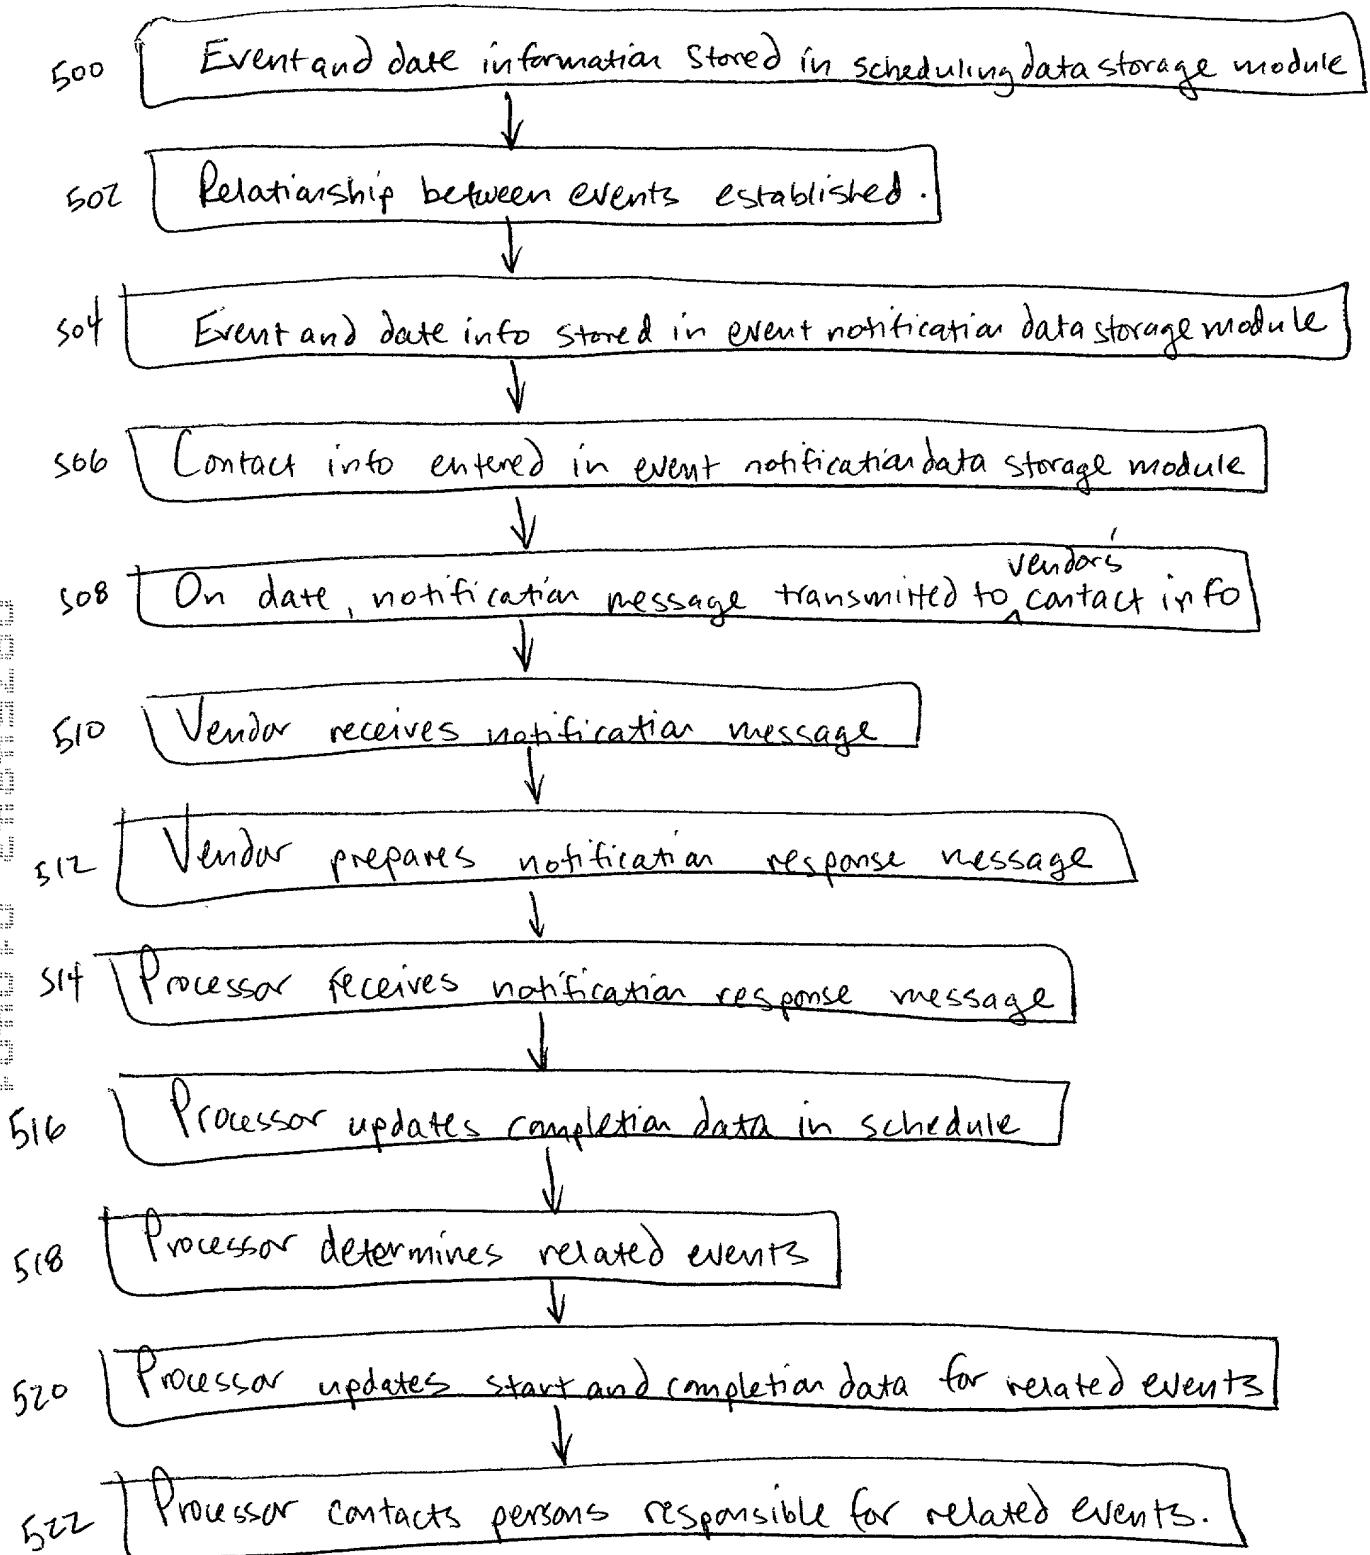 500 Event and date information stored in scheduling data storage module
502 Relationship between events established.
504 Event and date info stored in event notification data storage module
506 Contact info entered in event notification data storage module
vendor's
508 On date, notification message transmitted to ^ contact info
510 Vendor receives notification message
512 Vendor prepares notification response message
514 Processor receives notification response message
516 Processor updates completion data in schedule
518 Processor determines related events
520 Processor updates start and completion data for related events
522 Processor contacts persons responsible for related events.